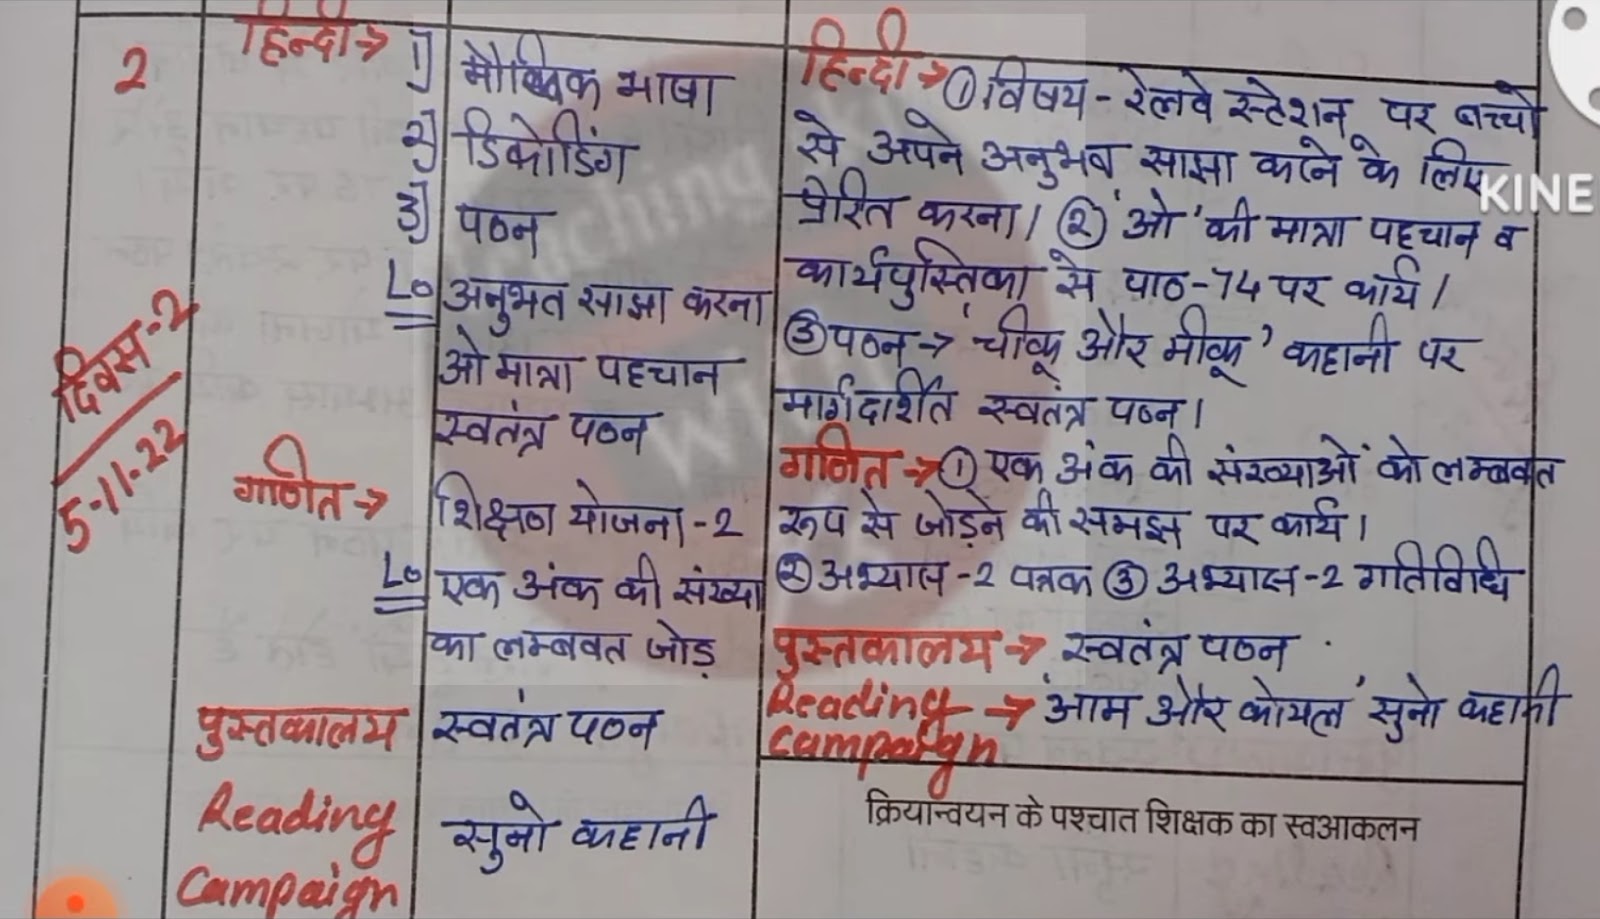 2
हिन्दी→
1] मौखिक भाषा
2] डिकोडिंग
3] पठन
Lo अनुभत साझा करना
ओ मात्रा पहचान
स्वतंत्र पठन
दिवस-2
5-11-22
गणित→
शिक्षण योजना-2
Lo एक अंक की संख्या
का लम्बवत जोड़
पुस्तकालय
स्वतंत्र पठन
Reading
Campaign
सुनो कहानी
हिन्दी→ ① विषय - रेलवे स्टेशन पर बच्चो
से अपने अनुभव साझा करने के लिए
प्रेरित करना। ② 'ओ' की मात्रा पहचान व
कार्यपुस्तिका से पाठ-74 पर कार्य।
③ पठन→ 'चीकू और मीकू' कहानी पर
मार्गदार्शित स्वतंत्र पठन।
गणित→ ① एक अंक की संख्याओं को लम्बवत
रूप से जोड़ने की समझ पर कार्य।
② अभ्यास-2 पत्रक ③ अभ्यास-2 गतिविधि
पुस्तकालय→ स्वतंत्र पठन
Reading → 'आम और कोयल' सुनो कहानी
Campaign
क्रियान्वयन के पश्चात शिक्षक का स्वआकलन
KINE